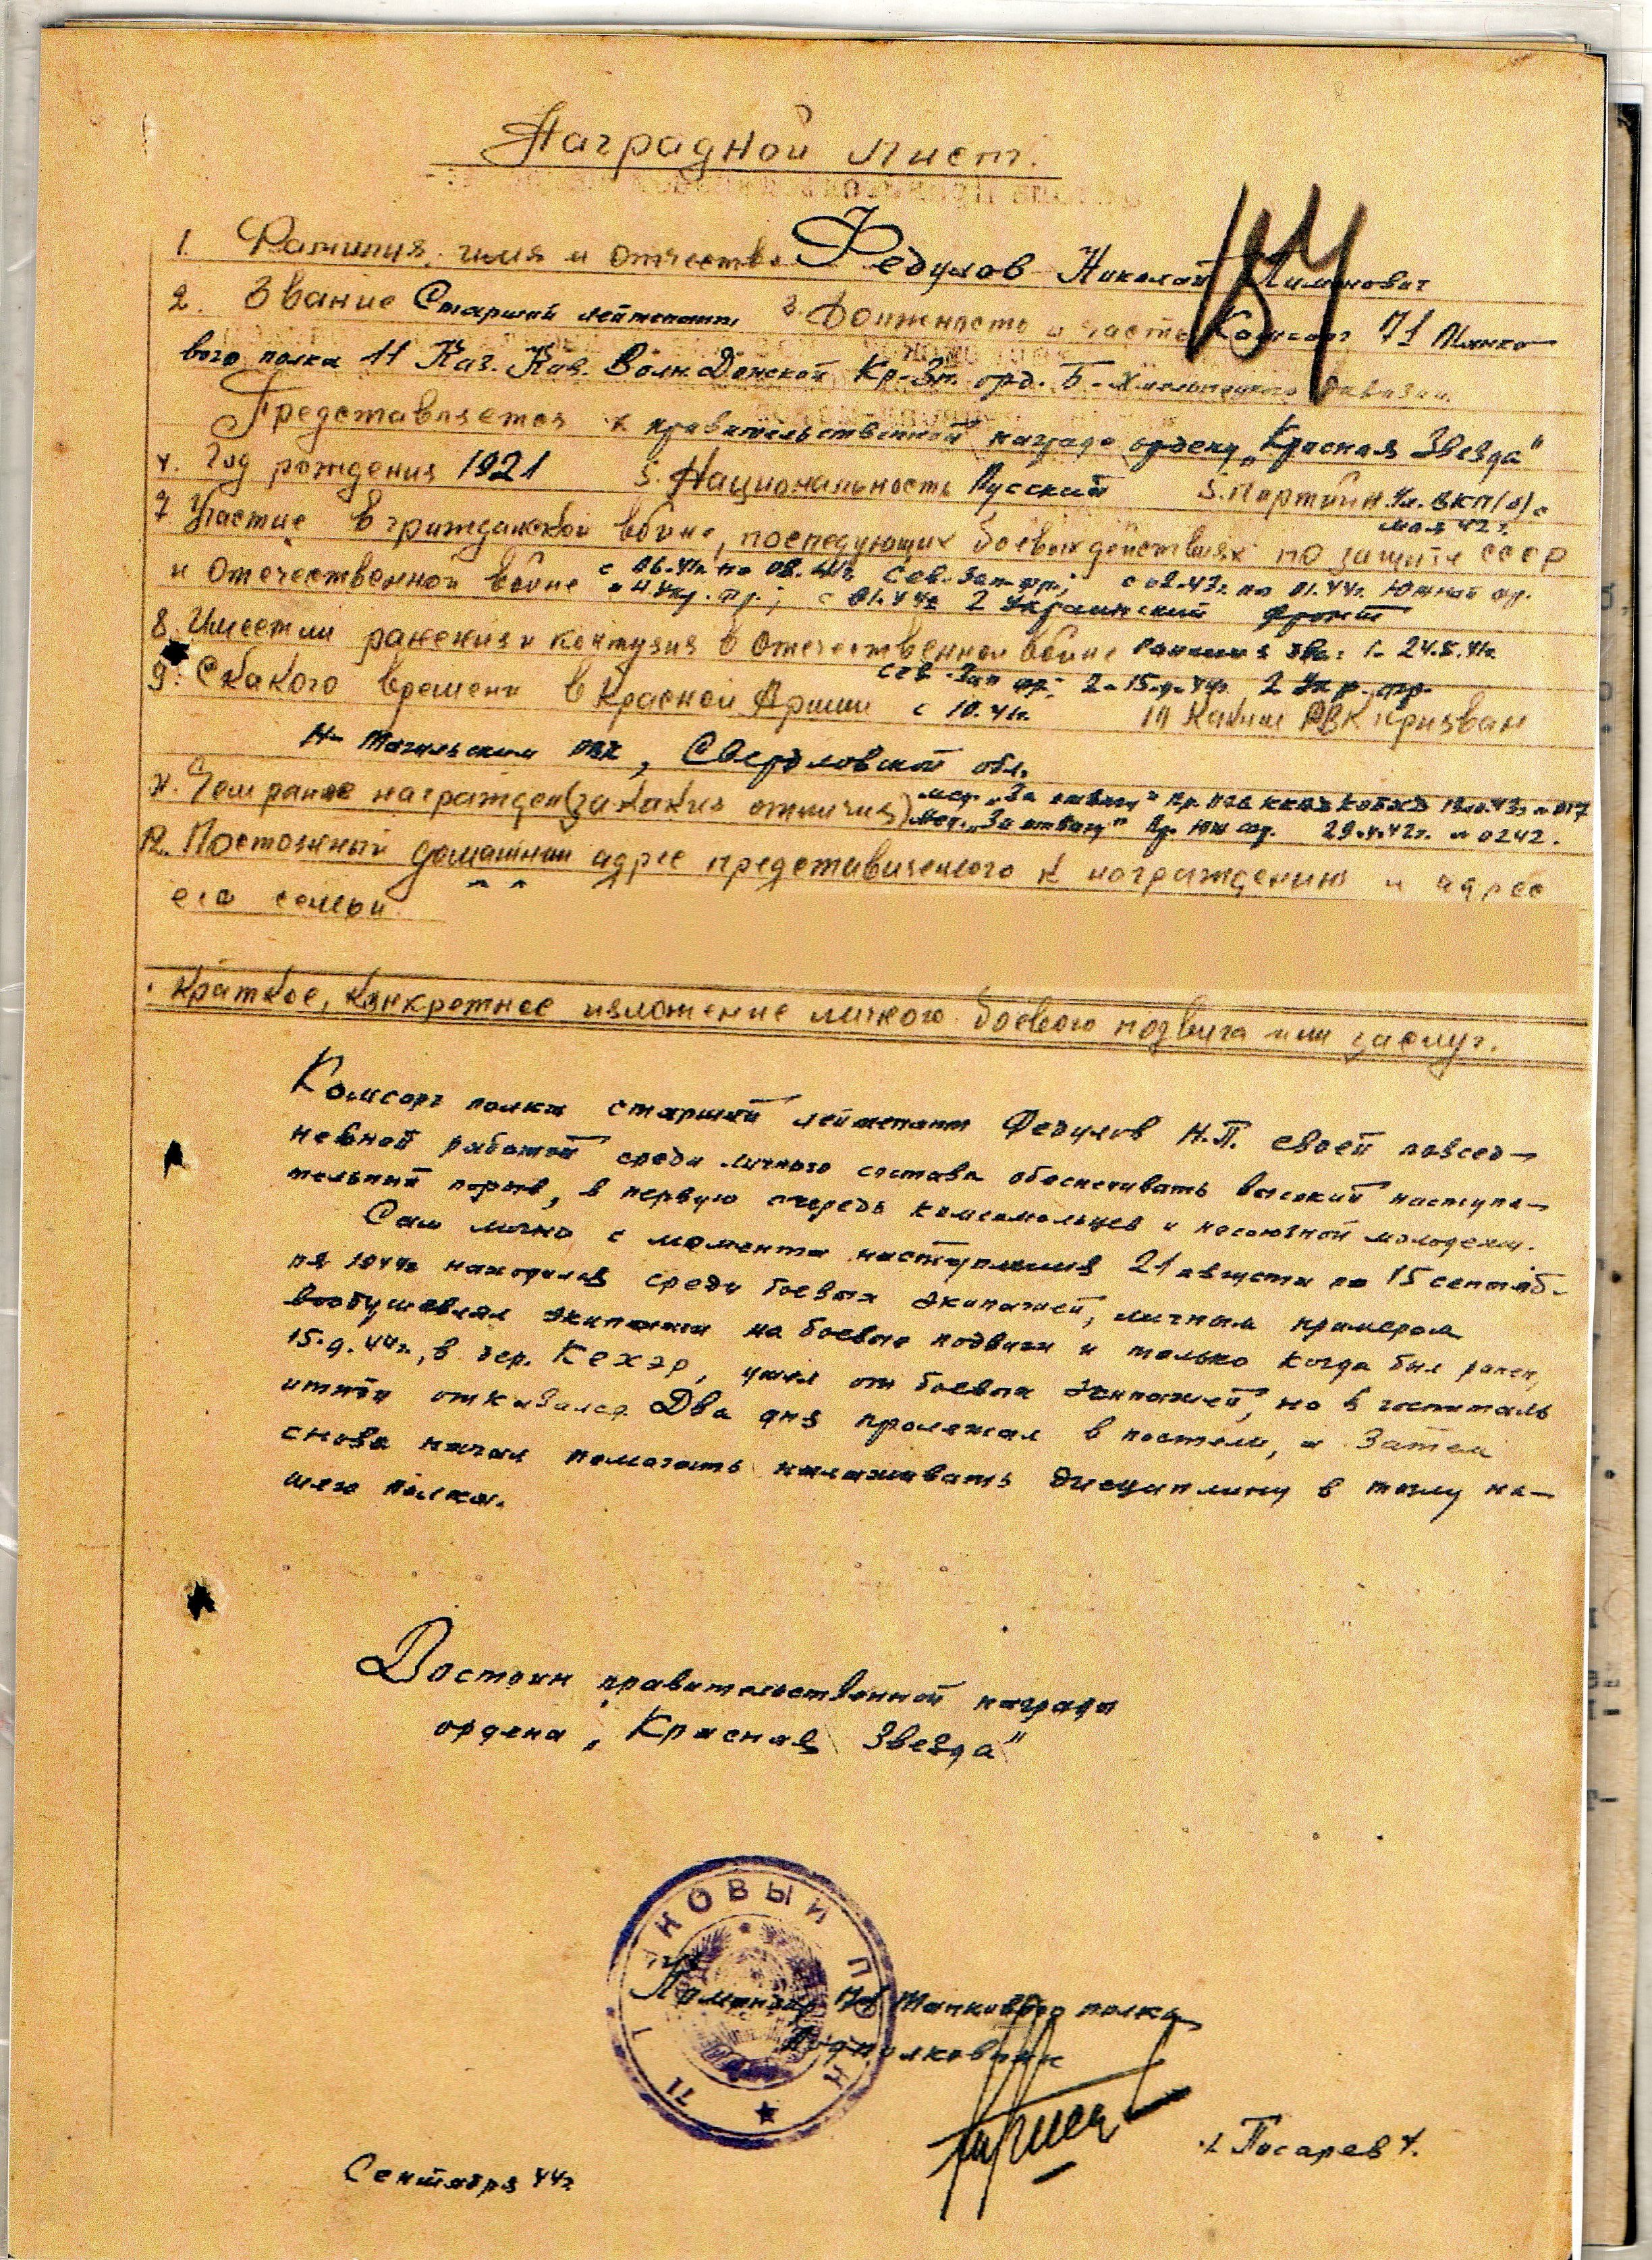 Наградной лист.
184
1. Фамилия, имя и отчество Федулов Николай
2. Звание Старший лейтенант 3. Должность и часть Комсорг 71 Танко-
вого полка 11 Каз. Кав. Волн. Донской Кр-Зн. орд. Б-Хмельницкого дивизии.
Представляется к правительственной награде ордену „Красная Звезда"
4. Год рождения 1921 5. Национальность Русский 5. Партийн. чл. ВКП(б) с
мая 42 г.
7. Участие в гражданской войне, последующих боевых действиях по защите СССР
и Отечественной войне с 06.41г. по 08.41г. Сев-Зап. фр.; с 02.43г. по 01.44г. Южный фр.
и 4 Укр. фр.; с 01.44г. 2 Украинский фронт
8. Имеет ли ранения и контузия в Отечественной войне ранения два: 1- 24.8.41г.
Сев-Зап фр; 2- 15.9.44г. 2 Укр. фр.
9. С какого времени в Красной Армии с 10.41г. 10 Каким РВК призван
Н-Тагильским РВК, Свердловской обл.
11. Чем ранее награжден (за какие отличия) мед. „За отвагу" Пр. 13.10.43г. № 017
Мед. „За отвагу" Пр. Юж фр. 29.4.42г. № 0242.
12. Постоянный домашний адрес представляемого к награждению и адрес
его семьи.
Краткое, конкретное изложение личного боевого подвига или заслуг.
Комсорг полка старший лейтенант Федулов Н.П. своей повсед-
невной работой среди личного состава обеспечивать высокий наступа-
тельный порыв, в первую очередь комсомольцев и несоюзной молодежи.
Сам лично с момента наступления 21 августа по 15 сентяб-
ря 1944г находился среди боевых экипажей, личным примером
воодушевлял экипажи на боевые подвиги и только когда был ранен,
15.9.44г., в дер. Кехэр, ушел от боевых экипажей, но в госпиталь
итти отказался. Два дня пролежал в постели, а затем
снова начал помогать налаживать дисциплину в тылу на-
шего полка.
Достоин правительственной награды
ордена „Красная Звезда"
71 ТАНКОВЫЙ ПОЛК
Командир 71 Танкового полка
Подполковник
/Писарев/.
Сентября 44г.